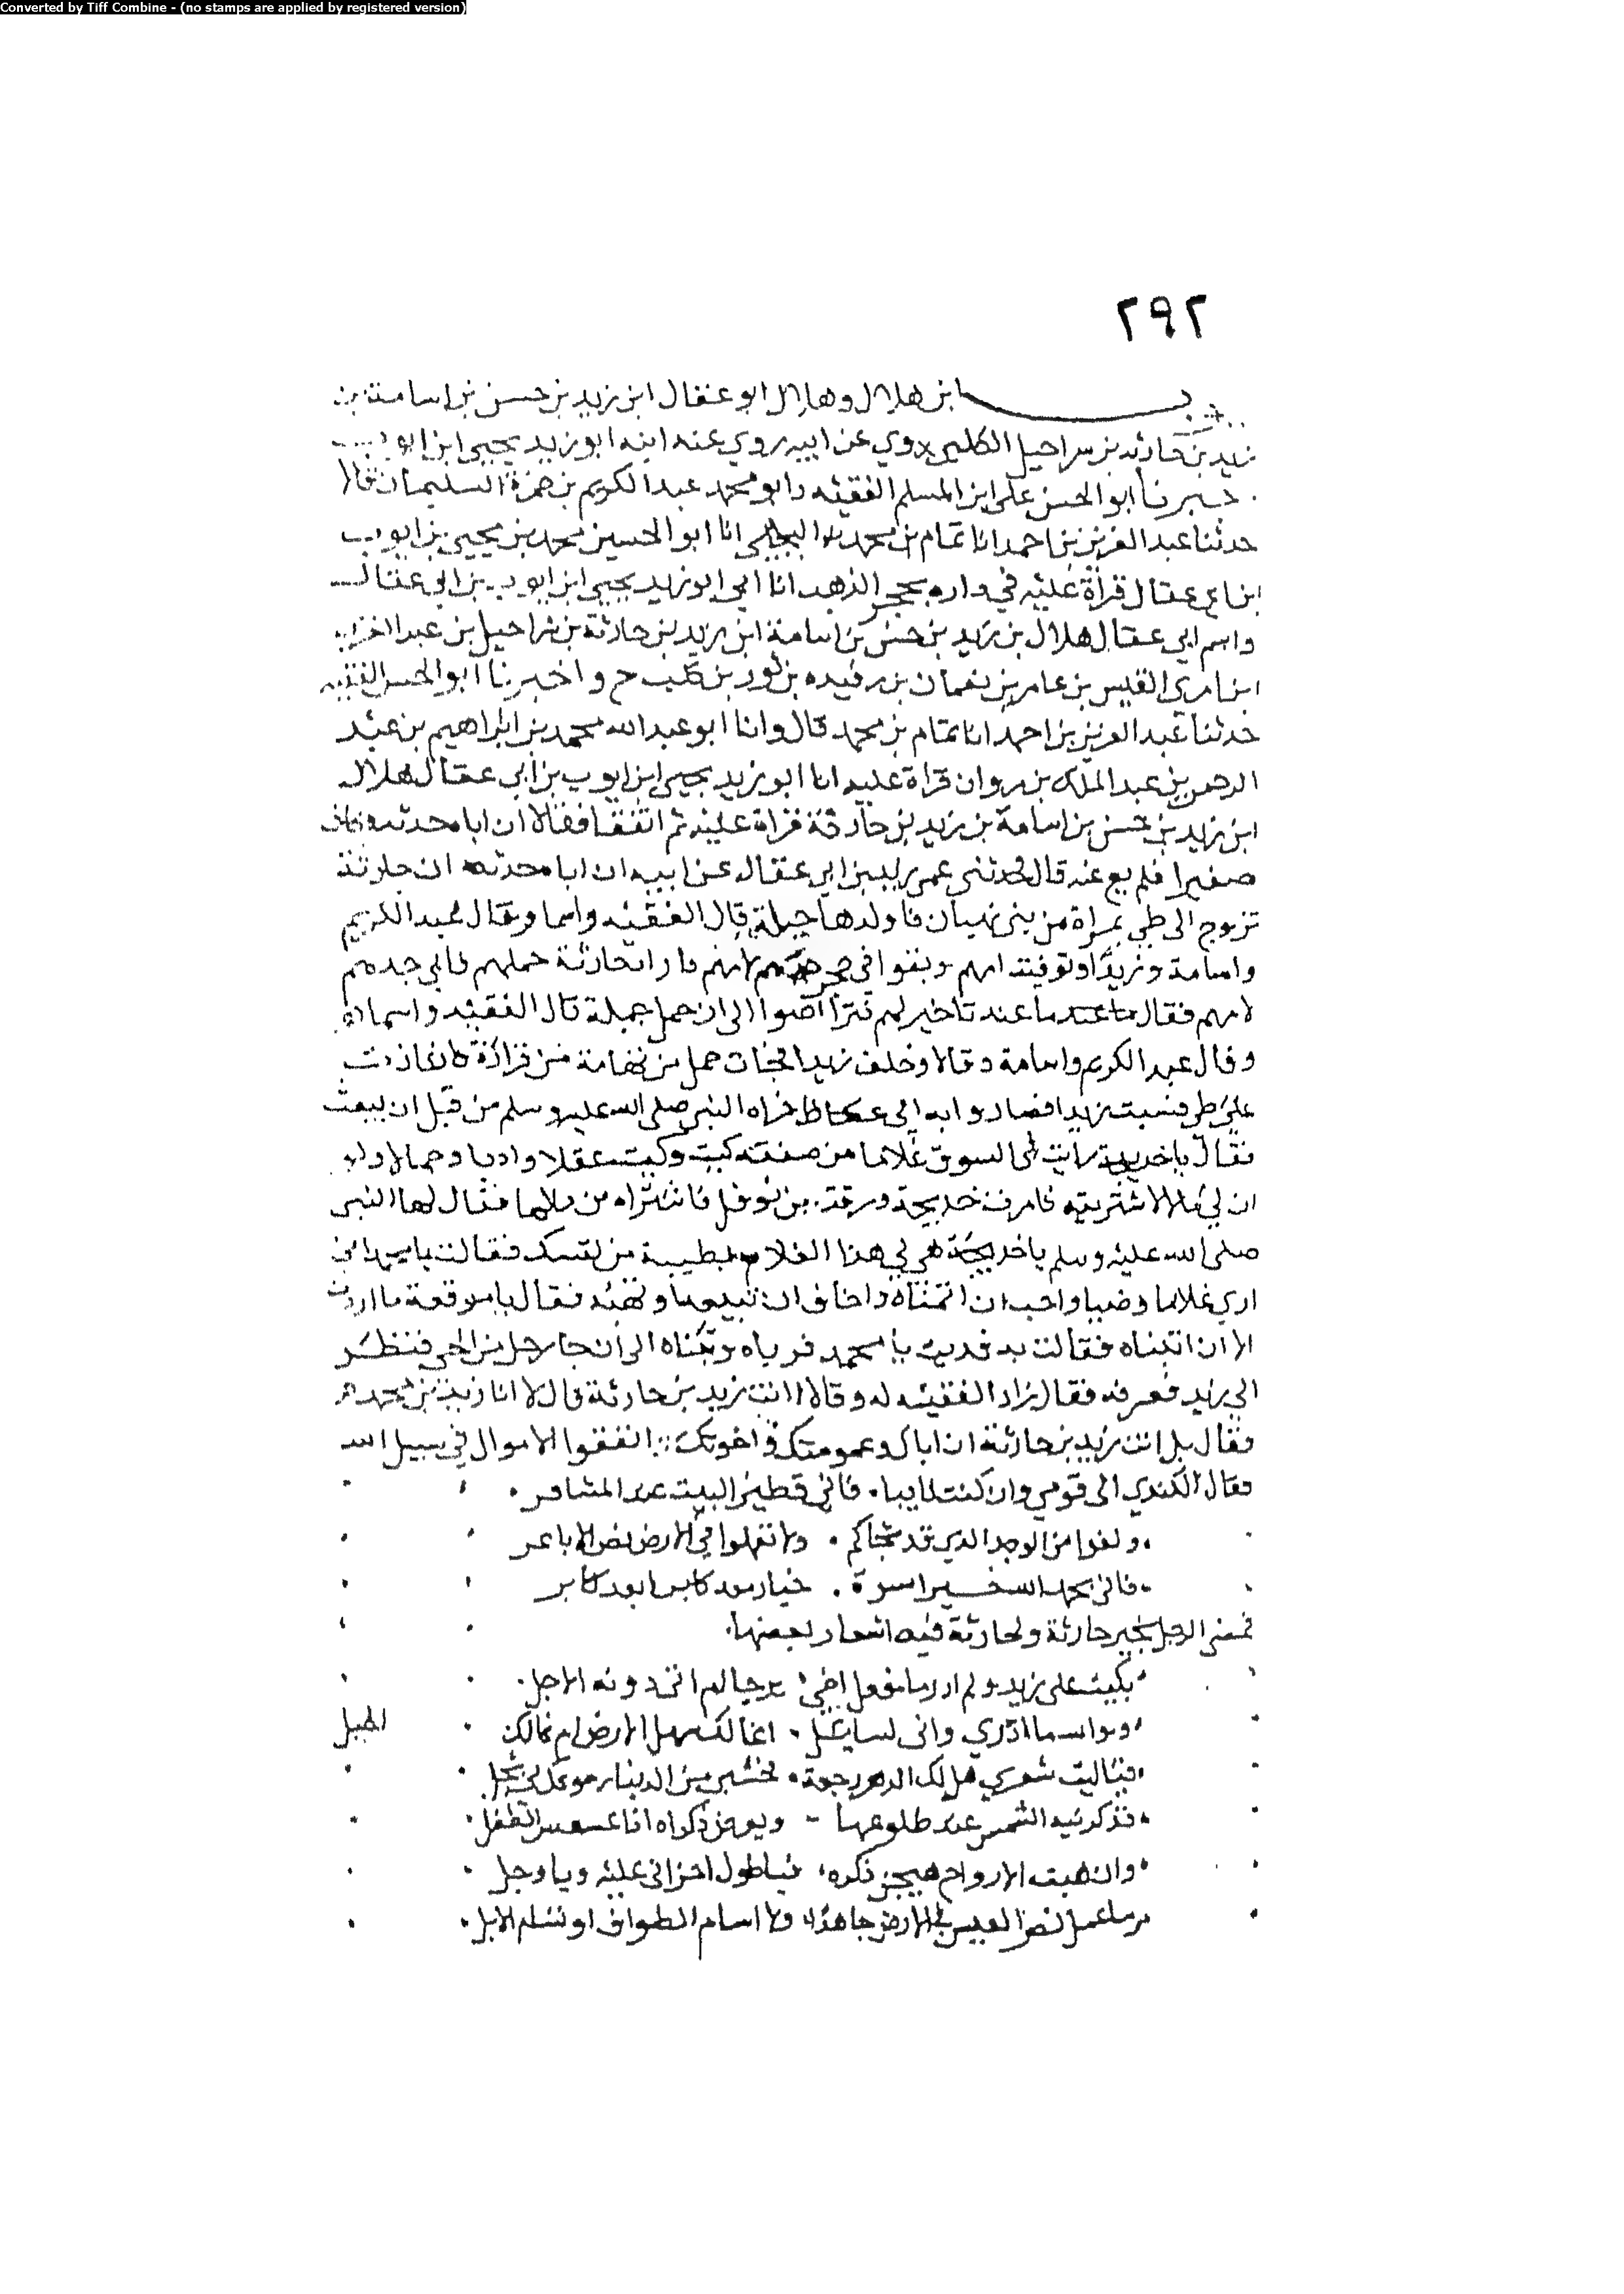 Converted by Tiff Combine - (no stamps are applied by registered version)
٢٩٢
ابن هلال وهلال ابو عقال ابن زيد بن حسن بن اسامة بن
زيد بن حارثه بن سراحيل الكلبي روي عن ابيه روي عنه ابنه ابو زيد يحيى ابن ايوب
ابو الحسن على ابن المسلم الفقيه وابو محمد عبد الكريم بن حمزة السليمان قالا
حدثنا عبد العزيز بن احمد انا تمام بن محمد البجلي انا ابو الحسين محمد بن يحيى بن ايوب
ابن ابي عقال قراة عليه في داره بحجر الذهب انا ابي ابو زيد يحيى ابن ايوب بن ابي عقال
واسم ابي عقال هلال بن زيد بن حسن بن اسامة ابن زيد بن حارثة بن شراحيل بن عبد العزى
ابن امري القيس بن عامر بن نعمان بن رفيده بن ثور بن كلب ح و اخبرنا ابو الحسن الفقيه
حدثنا عبد العزيز بن احمد انا تمام بن محمد قال وانا ابو عبد الله محمد بن ابراهيم بن عبد
الرحمن بن عبد الملك بن مروان قراة عليه انا ابو زيد يحيى ابن ايوب بن ابي عقال هلال
ابن زيد بن حسن بن اسامة بن زيد بن حارثة قراة عليه ثم اتفقا فقالا ان اباه حدثه وكان
صغيرا فلم يع عنه قال حدثني عمي زيد بن ابي عقال عن ابيه ان اباه حدثه ان حارثة
تزوج الى طي بمراة من بني نبهان فاولدها جبلة قال الفقيه واسما وقال عبد الكريم
واسامة وزيدا وتوفيت امهم وبقوا في حجر جدهم لامهم واراد حارثة حملهم فابي جدهم
لامهم فقال ما عندنا خير لهم فتراضوا الى ان حمل جبلة قال الفقيه واسما
وقال عبد الكريم واسامة وقالا وخلف زيدا فجات خيل من تهامة من فزازة فاغارت
على طي فسبت زيدا فصاروا به الى عكاظ فراه النبي صلى الله عليه وسلم من قبل ان يبعث
فقال يا خديجة رايت في السوق غلاما من صفته كيت وكيت عقلا وادبا وجمالا ولو
ان لي مالا لاشتريته فامرت خديجة ورقة بن نوفل فاشتراه من مالها فقال لها النبي
صلى الله عليه وسلم يا خديجة هبي لي هذا الغلام بطيبة من نفسك فقالت يا محمد اني
اري غلاما وضيا واحب ان اتبناه واخاف ان تبيعه او تهبه فقال يا موفقة ما اردت
الا ان اتبناه فقالت به فديت يا محمد فرباه وتبناه الى ان جا رجل من الحي فنظر
الى زيد فعرفه فقال زاد الفقيه له وقالا انت زيد بن حارثة قال لا انا زيد بن محمد
فقال بل انت زيد بن حارثة ان اباك وعمومتك واخوتك انفقوا الاموال في سبيل الله
فقال الكندي الى قومي وان كنت نايبا . فاني قطين البيت عند المشاعر .
وكفوا من الوجد الذي قد شجاكم . ولا تعملوا في الارض نص الاباعر
فاني بحمد الله خير اسرة . خيار معد كابرا بعد كابر
فمضى الرجل بخبر حارثة ولحارثة فيه اشعار بعضها.
بكيت على زيد ولم ادر ما فعل احي يرجا ام اتى دونه الاجل .
ووالله ما ادري واني لسايل . اغالك سهل الارض ام غالك الجبل
فياليت شعري هل لك الدهر رجعة . فحسبي من الدنيا رجوعك لي بجل
تذكرنيه الشمس عند طلوعها - ويعرض ذكراه اذا عسعس الطفل .
وان هبت الارواح هيجن ذكره . فيا طول احزاني عليه ويا وجل
ساعمل نص العيس في الارض جاهدا ولا اسام الطواف او تسام الابل .